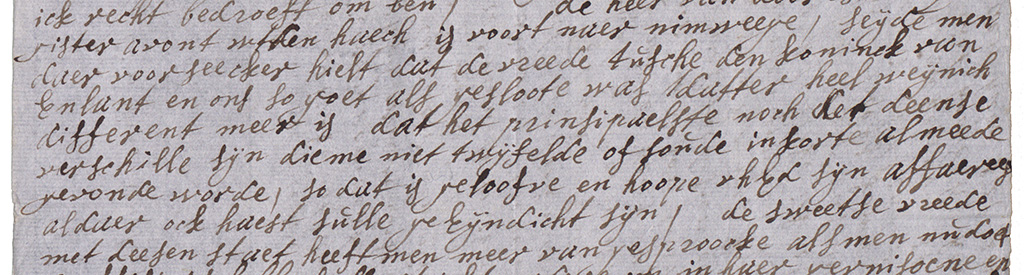 ick recht bedroeft om ben / de heer van
gister avont wt den haech is voort naer nimweege / seyde men
daer voor seecker hielt dat de vreede tusche den koninck van
Enlant en ons so goet als gesloote was datter heel weijnich
different meer is dat het prinsipaelste noch der deense
verschille sijn dieme niet twijfelde of soude in korte almeede
gevonde worde, so dat is geloofve en hoope vhEd sijn affaeree
aldaer ock haest sulle geEijndicht sijn / de sweetse vreede
met deesen staet heeft men meer van gesproocke als men nu doet
in haer